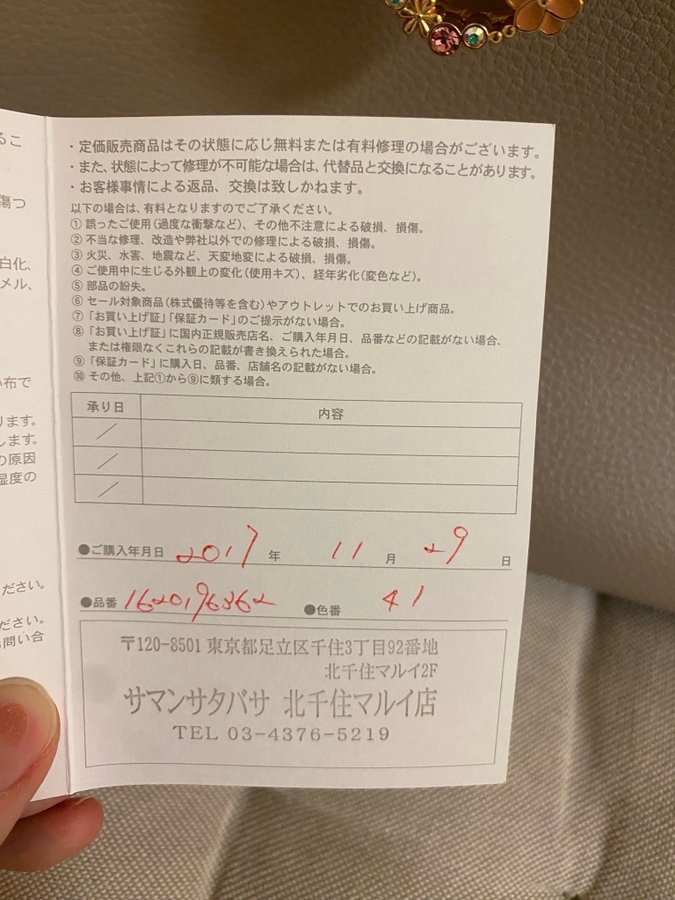 るこ
傷つ
白化、
メル、
い布で
ります。
します。
の原因
湿度の
ください。
ださい。
お問い合
・定価販売商品はその状態に応じ無料または有料修理の場合がございます。
・また、状態によって修理が不可能な場合は、代替品と交換になることがあります。
・お客様事情による返品、交換は致しかねます。
以下の場合は、有料となりますのでご了承ください。
① 誤ったご使用(過度な衝撃など)、その他不注意による破損、損傷。
② 不当な修理、改造や弊社以外での修理による破損、損傷。
③ 火災、水害、地震など、天変地変による破損、損傷。
④ ご使用中に生じる外観上の変化(使用キズ)、経年劣化(変色など)。
⑤ 部品の紛失。
⑥ セール対象商品(株式優待等を含む)やアウトレットでのお買い上げ商品。
⑦「お買い上げ証」「保証カード」のご提示がない場合。
⑧「お買い上げ証」に国内正規販売店名、ご購入年月日、品番などの記載がない場合、
または権限なくこれらの記載が書き換えられた場合。
⑨「保証カード」に購入日、品番、店舗名の記載がない場合。
⑩ その他、上記①から⑨に類する場合。
承り日 内容
／
／
／
●ご購入年月日 2017 年 11 月 29 日
●品番 1620196362 ●色番 41
〒120-8501 東京都足立区千住3丁目92番地
北千住マルイ2F
サマンサタバサ 北千住マルイ店
TEL 03-4376-5219